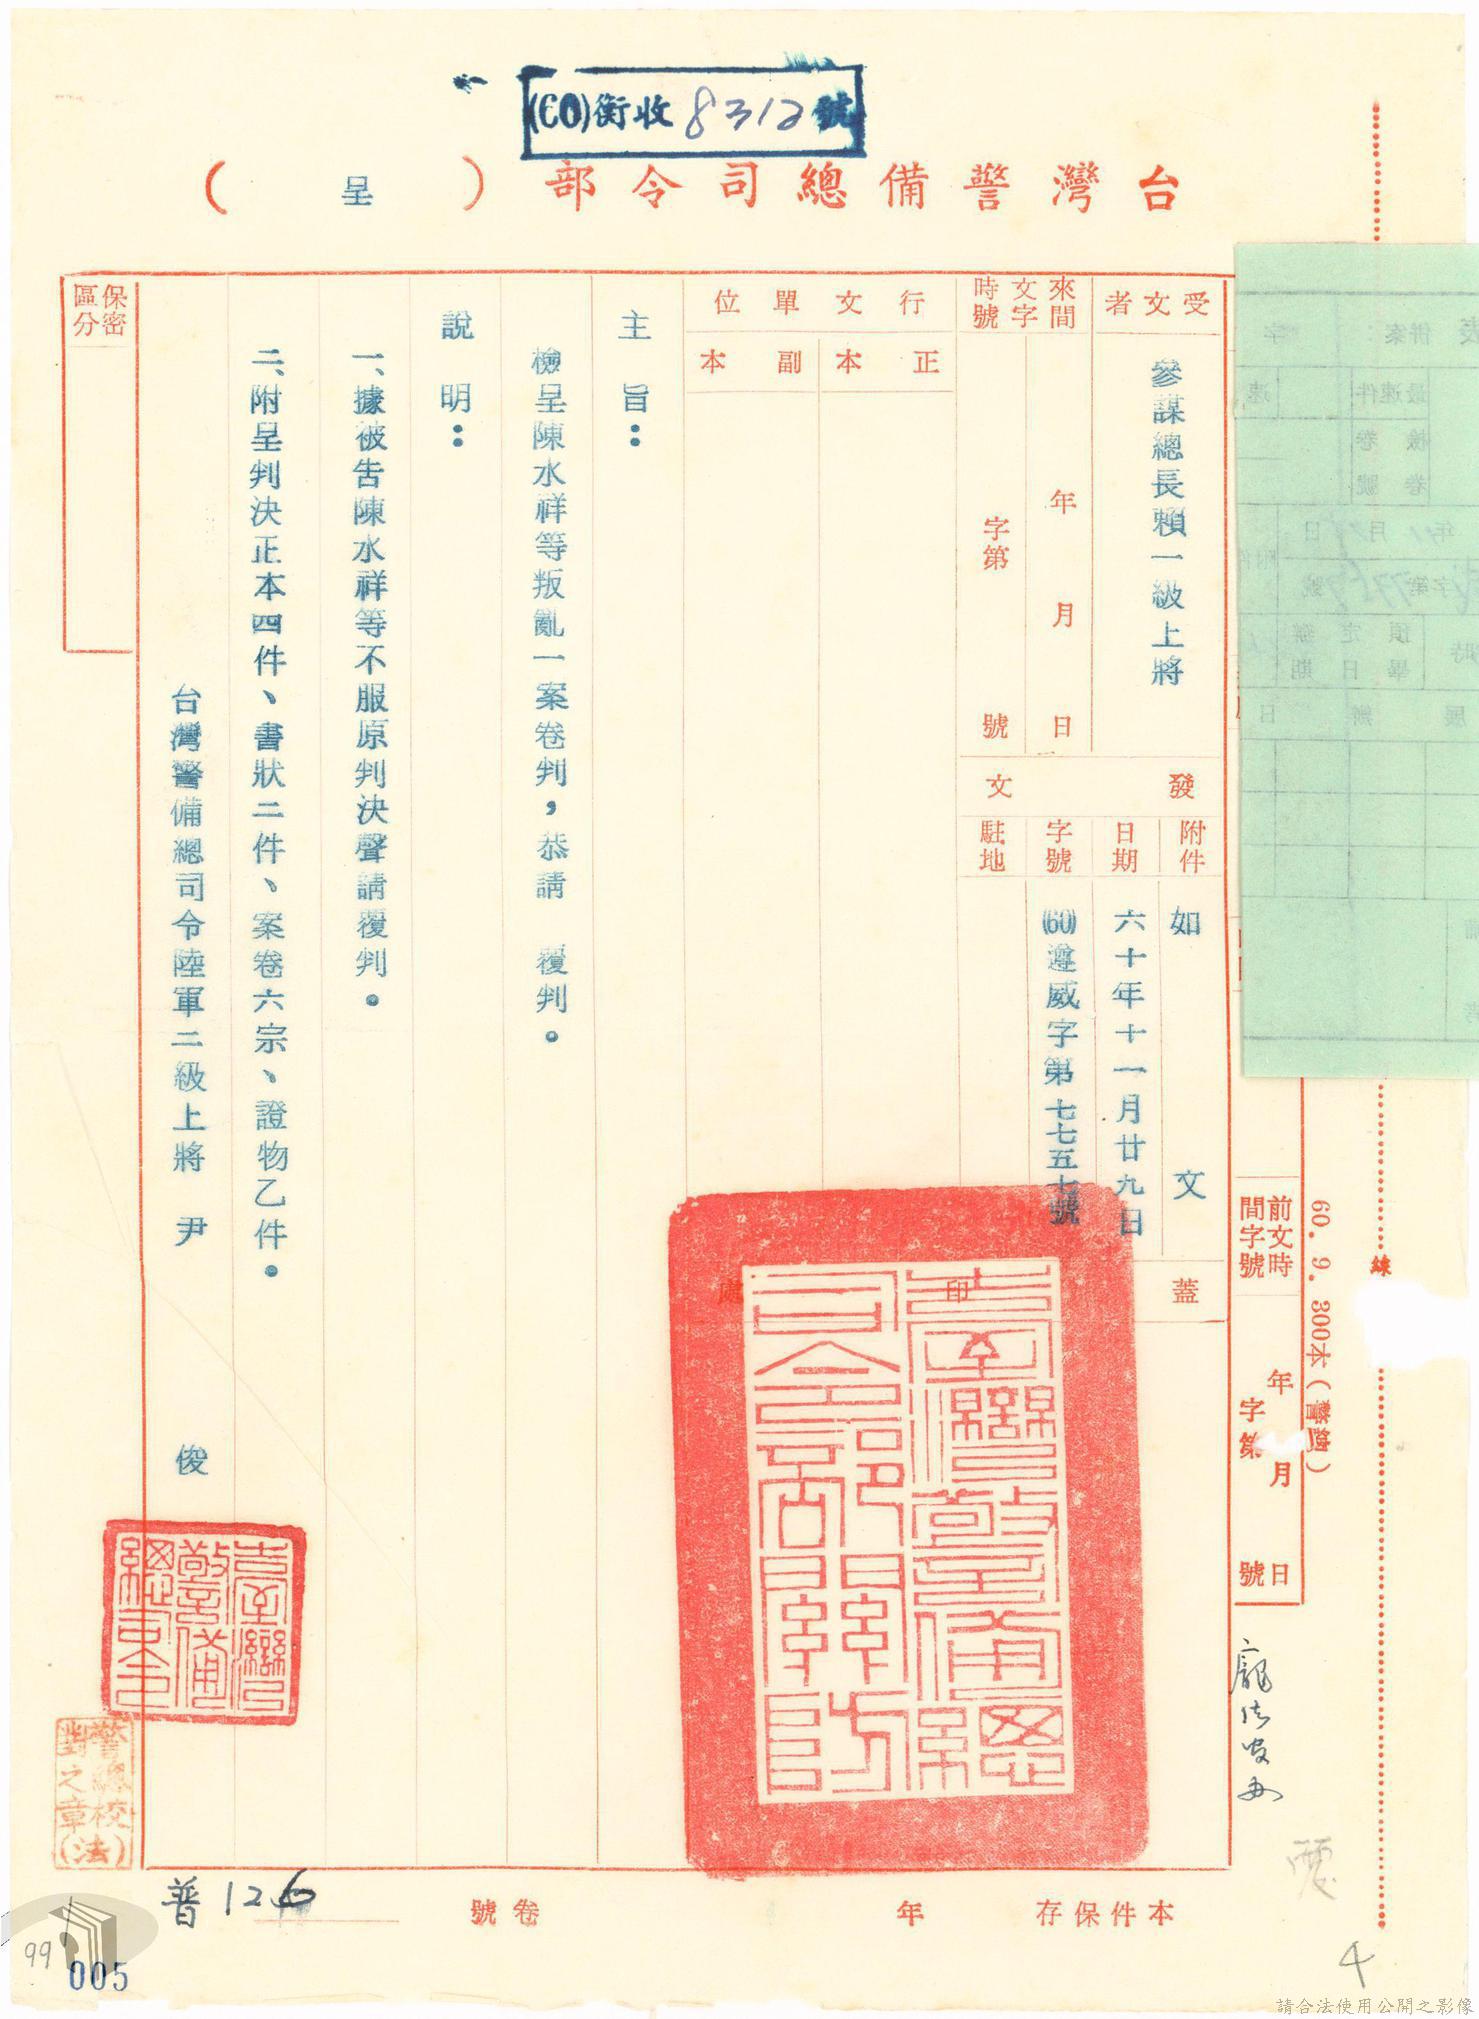 (60)衡收8312號
台灣警備總司令部（呈）
受文者
參謀總長賴一級上將
來文時間字號
年月日
字第號
行文單位
正本
副本
發文
附件
如文
日期
六十年十一月廿九日
字號
(60)遵威字第七七五七號
駐地
蓋印處
主旨：
檢呈陳水祥等叛亂一案卷判，恭請　覆判。
說明：
一、據被告陳水祥等不服原判決聲請覆判。
二、附呈判決正本四件、書狀二件、案卷六宗、證物乙件。
台灣警備總司令陸軍二級上將　尹　俊
臺灣警備總司令部關防
臺灣警備總司令
警總校對之章(法)
保密區分
前文時間字號
年月日
字第號
60. 9. 300本（警總）
線
本件保存　年
卷號
普126
4
99
005
請合法使用公開之影像